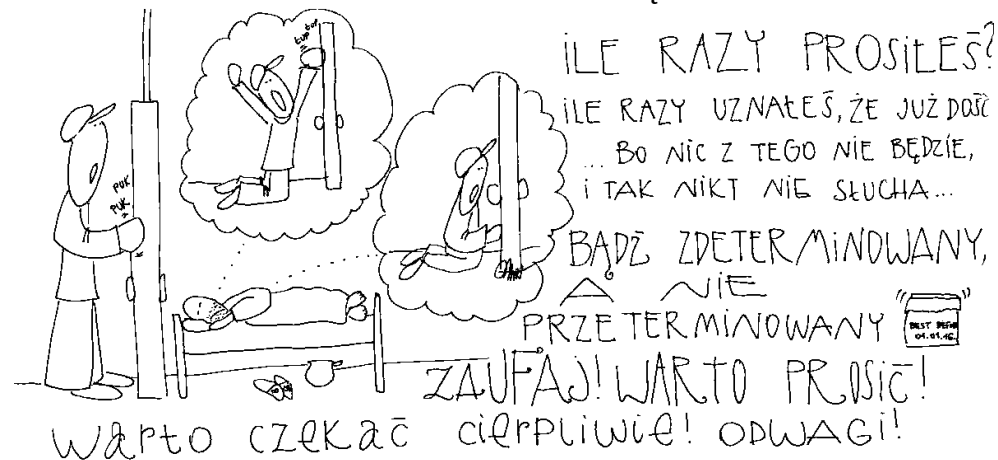 łup łup
PUK
PUK
ILE RAZY PROSIŁEŚ?
ILE RAZY UZNAŁEŚ, ŻE JUŻ DOŚĆ
... BO NIC Z TEGO NIE BĘDZIE,
I TAK NIKT NIE SŁUCHA...
BĄDŹ ZDETERMINOWANY,
A NIE
PRZETERMINOWANY
BEST BEFORE
01.01.16.
ZAUFAJ! WARTO PROSIĆ!
WARTO CZEKAĆ CIERPLIWIE! ODWAGI!